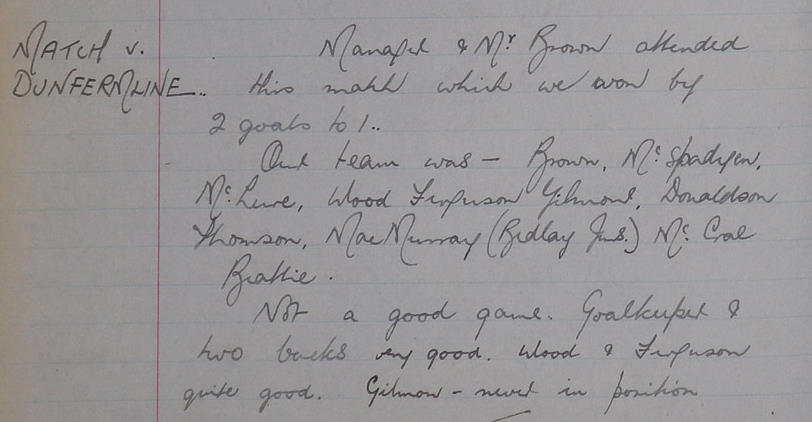 MATCH v. Manager & Mr Brown attended
DUNFERMLINE.. this match which we won by
2 goals to 1..
Our team was - Brown, Mc Spadyen,
Mc Lure, Wood Ferguson Gilmour, Donaldson
Thomson, MacMurray (Bedlay Jns.) Mc Crae
Beattie.
Not a good game. Goalkeeper &
two backs very good. Wood & Ferguson
quite good. Gilmour - never in position